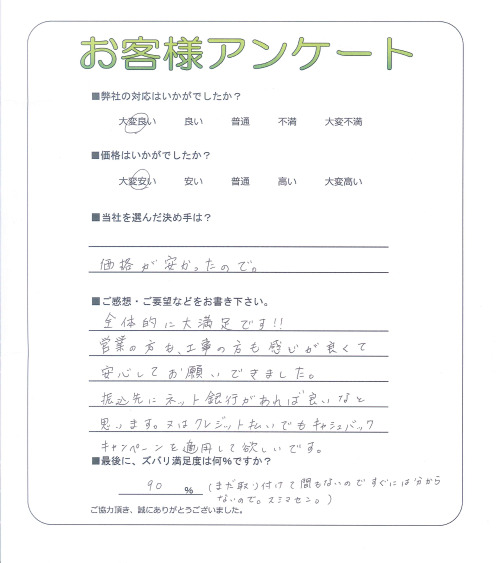 お客様アンケート
■弊社の対応はいかがでしたか？
大変良い 良い 普通 不満 大変不満
■価格はいかがでしたか？
大変安い 安い 普通 高い 大変高い
■当社を選んだ決め手は？
価格が安かったので。
■ご感想・ご要望などをお書き下さい。
全体的に大満足です!!
営業の方も、工事の方も感じが良くて
安心してお願いできました。
振込先にネット銀行があれば良いなと
思います。又はクレジット払いでもキャシュバック
キャンペーンを適用して欲しいです。
■最後に、ズバリ満足度は何%ですか？
90 % (まだ取り付けて間もないのですぐには分から
ないので。スミマセン。)
ご協力頂き、誠にありがとうございました。